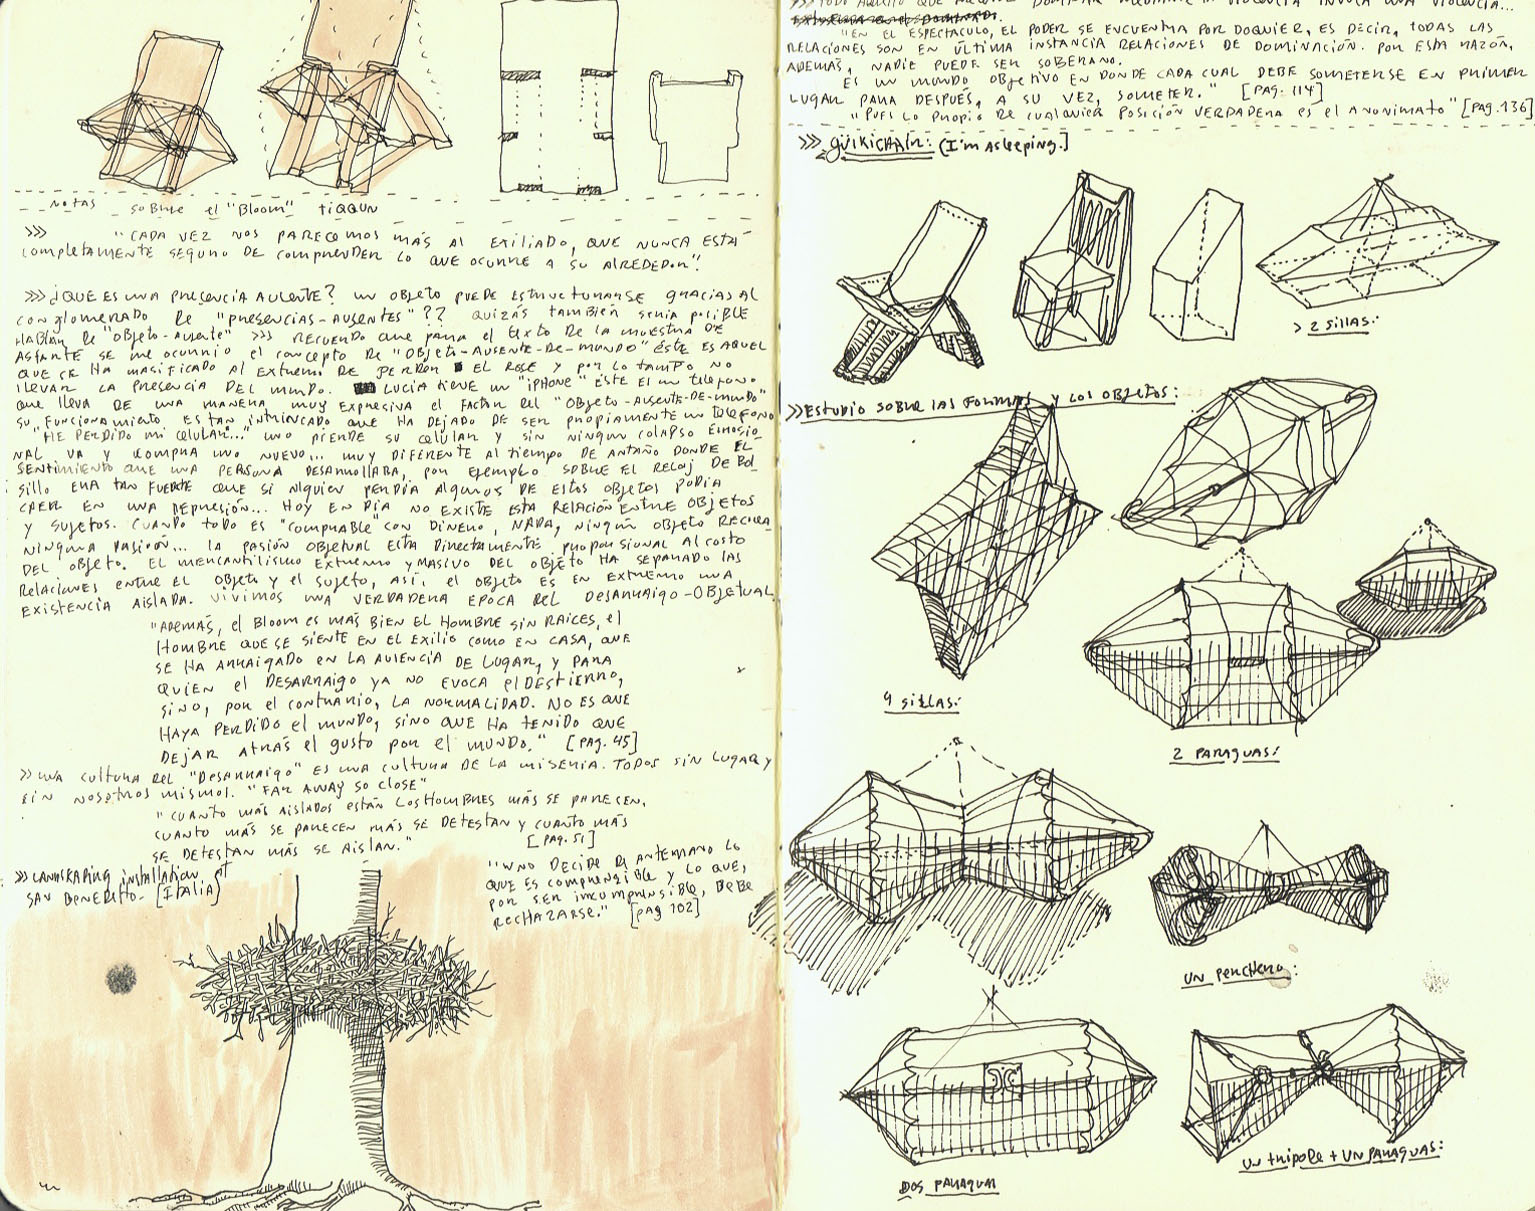 NOTAS SOBRE el "Bloom" TIQQUN
>>> "CADA VEZ NOS PARECEMOS MÁS AL EXILIADO, QUE NUNCA ESTÁ
COMPLETAMENTE SEGURO DE COMPRENDER LO QUE OCURRE A SU ALREDEDOR".
>>> ¿QUE ES UNA PRESENCIA AUSENTE? UN OBJETO PUEDE ESTRUCTURARSE GRACIAS AL
CONGLOMERADO DE "PRESENCIAS-AUSENTES"?? QUIZÁS TAMBIÉN SERIA POSIBLE
HABLAR DE "OBJETO-AUSENTE" >>> RECUERDO QUE PARA EL TEXTO DE LA MUESTRA DE
SE ME OCURRIO EL CONCEPTO DE "OBJETO-AUSENTE-DE-MUNDO" ÉSTE ES AQUEL
QUE SE HA MASIFICADO AL EXTREMO DE PERDER EL ROSE Y POR LO TANTO NO
LLEVAR LA PRESENCIA DEL MUNDO. LUCIA TIENE UN "IPHONE" ÉSTE ES UN TELEFONO
QUE LLEVA DE UNA MANERA MUY EXPRESIVA EL FACTOR DEL "OBJETO-AUSENTE-DE-MUNDO"
SU FUNCIONAMIENTO ES TAN INTRINCADO QUE HA DEJADO DE SER PROPIAMENTE UN TELEFONO
"HE PERDIDO MI CELULAR..." UNO PIERDE SU CELULAR Y SIN NINGUN COLAPSO EMOSIO
NAL VA Y COMPRA UNO NUEVO... MUY DIFERENTE AL TIEMPO DE ANTAÑO DONDE EL
SENTIMIENTO QUE UNA PERSONA DESARROLLABA, POR EJEMPLO SOBRE EL RELOJ DE BOL
SILLO ERA TAN FUERTE QUE SI ALGUIEN PERDIA ALGUNOS DE ESTOS OBJETOS PODIA
CAER EN UNA DEPRESIÓN... HOY EN DIA NO EXISTE ESTA RELACIÓN ENTRE OBJETOS
Y SUJETOS. CUANDO TODO ES "COMPRABLE" CON DINERO, NADA, NINGUN OBJETO RECLA
NINGUNA PASIÓN... LA PASIÓN OBJETUAL ESTA DIRECTAMENTE PROPORSIONAL AL COSTO
DEL OBJETO. EL MERCANTILISMO EXTREMO Y MASIVO DEL OBJETO HA SEPARADO LAS
RELACIONES ENTRE EL OBJETO Y EL SUJETO, ASI, EL OBJETO ES EN EXTREMO UNA
EXISTENCIA AISLADA. VIVIMOS UNA VERDADERA EPOCA DEL DESARRAIGO-OBJETUAL.
"ADEMÁS, EL BLOOM ES MÁS BIEN EL HOMBRE SIN RAICES, EL
HOMBRE QUE SE SIENTE EN EL EXILIO COMO EN CASA, QUE
SE HA ARRAIGADO EN LA AUSENCIA DE LUGAR, Y PARA
QUIEN EL DESARRAIGO YA NO EVOCA EL DESTIERRO,
SINO, POR EL CONTRARIO, LA NORMALIDAD. NO ES QUE
HAYA PERDIDO EL MUNDO, SINO QUE HA TENIDO QUE
DEJAR ATRÁS EL GUSTO POR EL MUNDO." [PAG. 45]
>> UNA CULTURA DEL "DESARRAIGO" ES UNA CULTURA DE LA MISERIA. TODOS SIN LUGAR Y
SIN NOSOTROS MISMOS. "FAR AWAY SO CLOSE"
"CUANTO MÁS AISLADOS ESTÁN LOS HOMBRES MÁS SE PARECEN,
CUANTO MÁS SE PARECEN MÁS SE DETESTAN Y CUANTO MÁS
SE DETESTAN MÁS SE AISLAN." [PAG. 51]
>> LANDSKAPING INSTALLATION AT
SAN BENEDETTO. [ITALIA]
"UNO DECIDE DE ANTEMANO LO
QUE ES COMPRENSIBLE Y LO QUE,
POR SER INCOMPRENSIBLE, DEBE
RECHAZARSE." [PAG 102]
"EN EL ESPECTACULO, EL PODER SE ENCUENTRA POR DOQUIER, ES DECIR, TODAS LAS
RELACIONES SON EN ÚLTIMA INSTANCIA RELACIONES DE DOMINACIÓN. POR ESTA RAZÓN,
ADEMÁS, NADIE PUEDE SER SOBERANO.
ES UN MUNDO OBJETIVO EN DONDE CADA CUAL DEBE SOMETERSE EN PRIMER
LUGAR PARA DESPUÉS, A SU VEZ, SOMETER." [PAG: 114]
"PUES LO PROPIO DE CUALQUIER POSICIÓN VERDADERA ES EL ANONIMATO" [PAG. 136]
>>> GÜIKICHAIR: (I'm Asleeping.]
> 2 SILLAS:
>> ESTUDIO SOBRE LAS FORMAS Y LOS OBJETOS:
4 SILLAS:
2 PARAGUAS:
UN PERCHERO:
DOS PARAGUAS
UN TRIPODE + UN PARAGUAS: